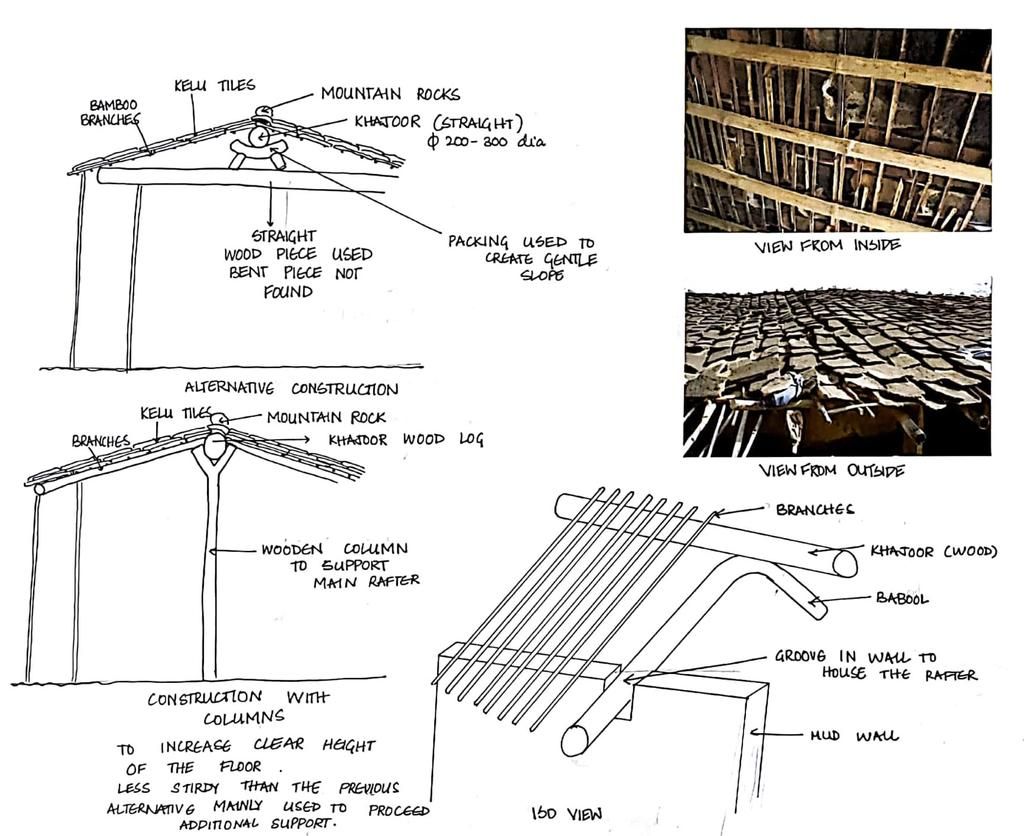 KELU TILES
MOUNTAIN ROCKS
BAMBOO
BRANCHES
KHAJOOR (STRAIGHT)
ϕ 200-300 dia
STRAIGHT
WOOD PIECE USED
BENT PIECE NOT
FOUND
PACKING USED TO
CREATE GENTLE
SLOPE
ALTERNATIVE CONSTRUCTION
VIEW FROM INSIDE
VIEW FROM OUTSIDE
KELU TILES
MOUNTAIN ROCK
BRANCHES
KHAJOOR WOOD LOG
WOODEN COLUMN
TO SUPPORT
MAIN RAFTER
CONSTRUCTION WITH
COLUMNS
TO INCREASE CLEAR HEIGHT
OF THE FLOOR .
LESS STIRDY THAN THE PREVIOUS
ALTERNATIVE MAINLY USED TO PROCEED
ADDITIONAL SUPPORT.
BRANCHES
KHAJOOR (WOOD)
BABOOL
GROOVE IN WALL TO
HOUSE THE RAFTER
MUD WALL
ISO VIEW